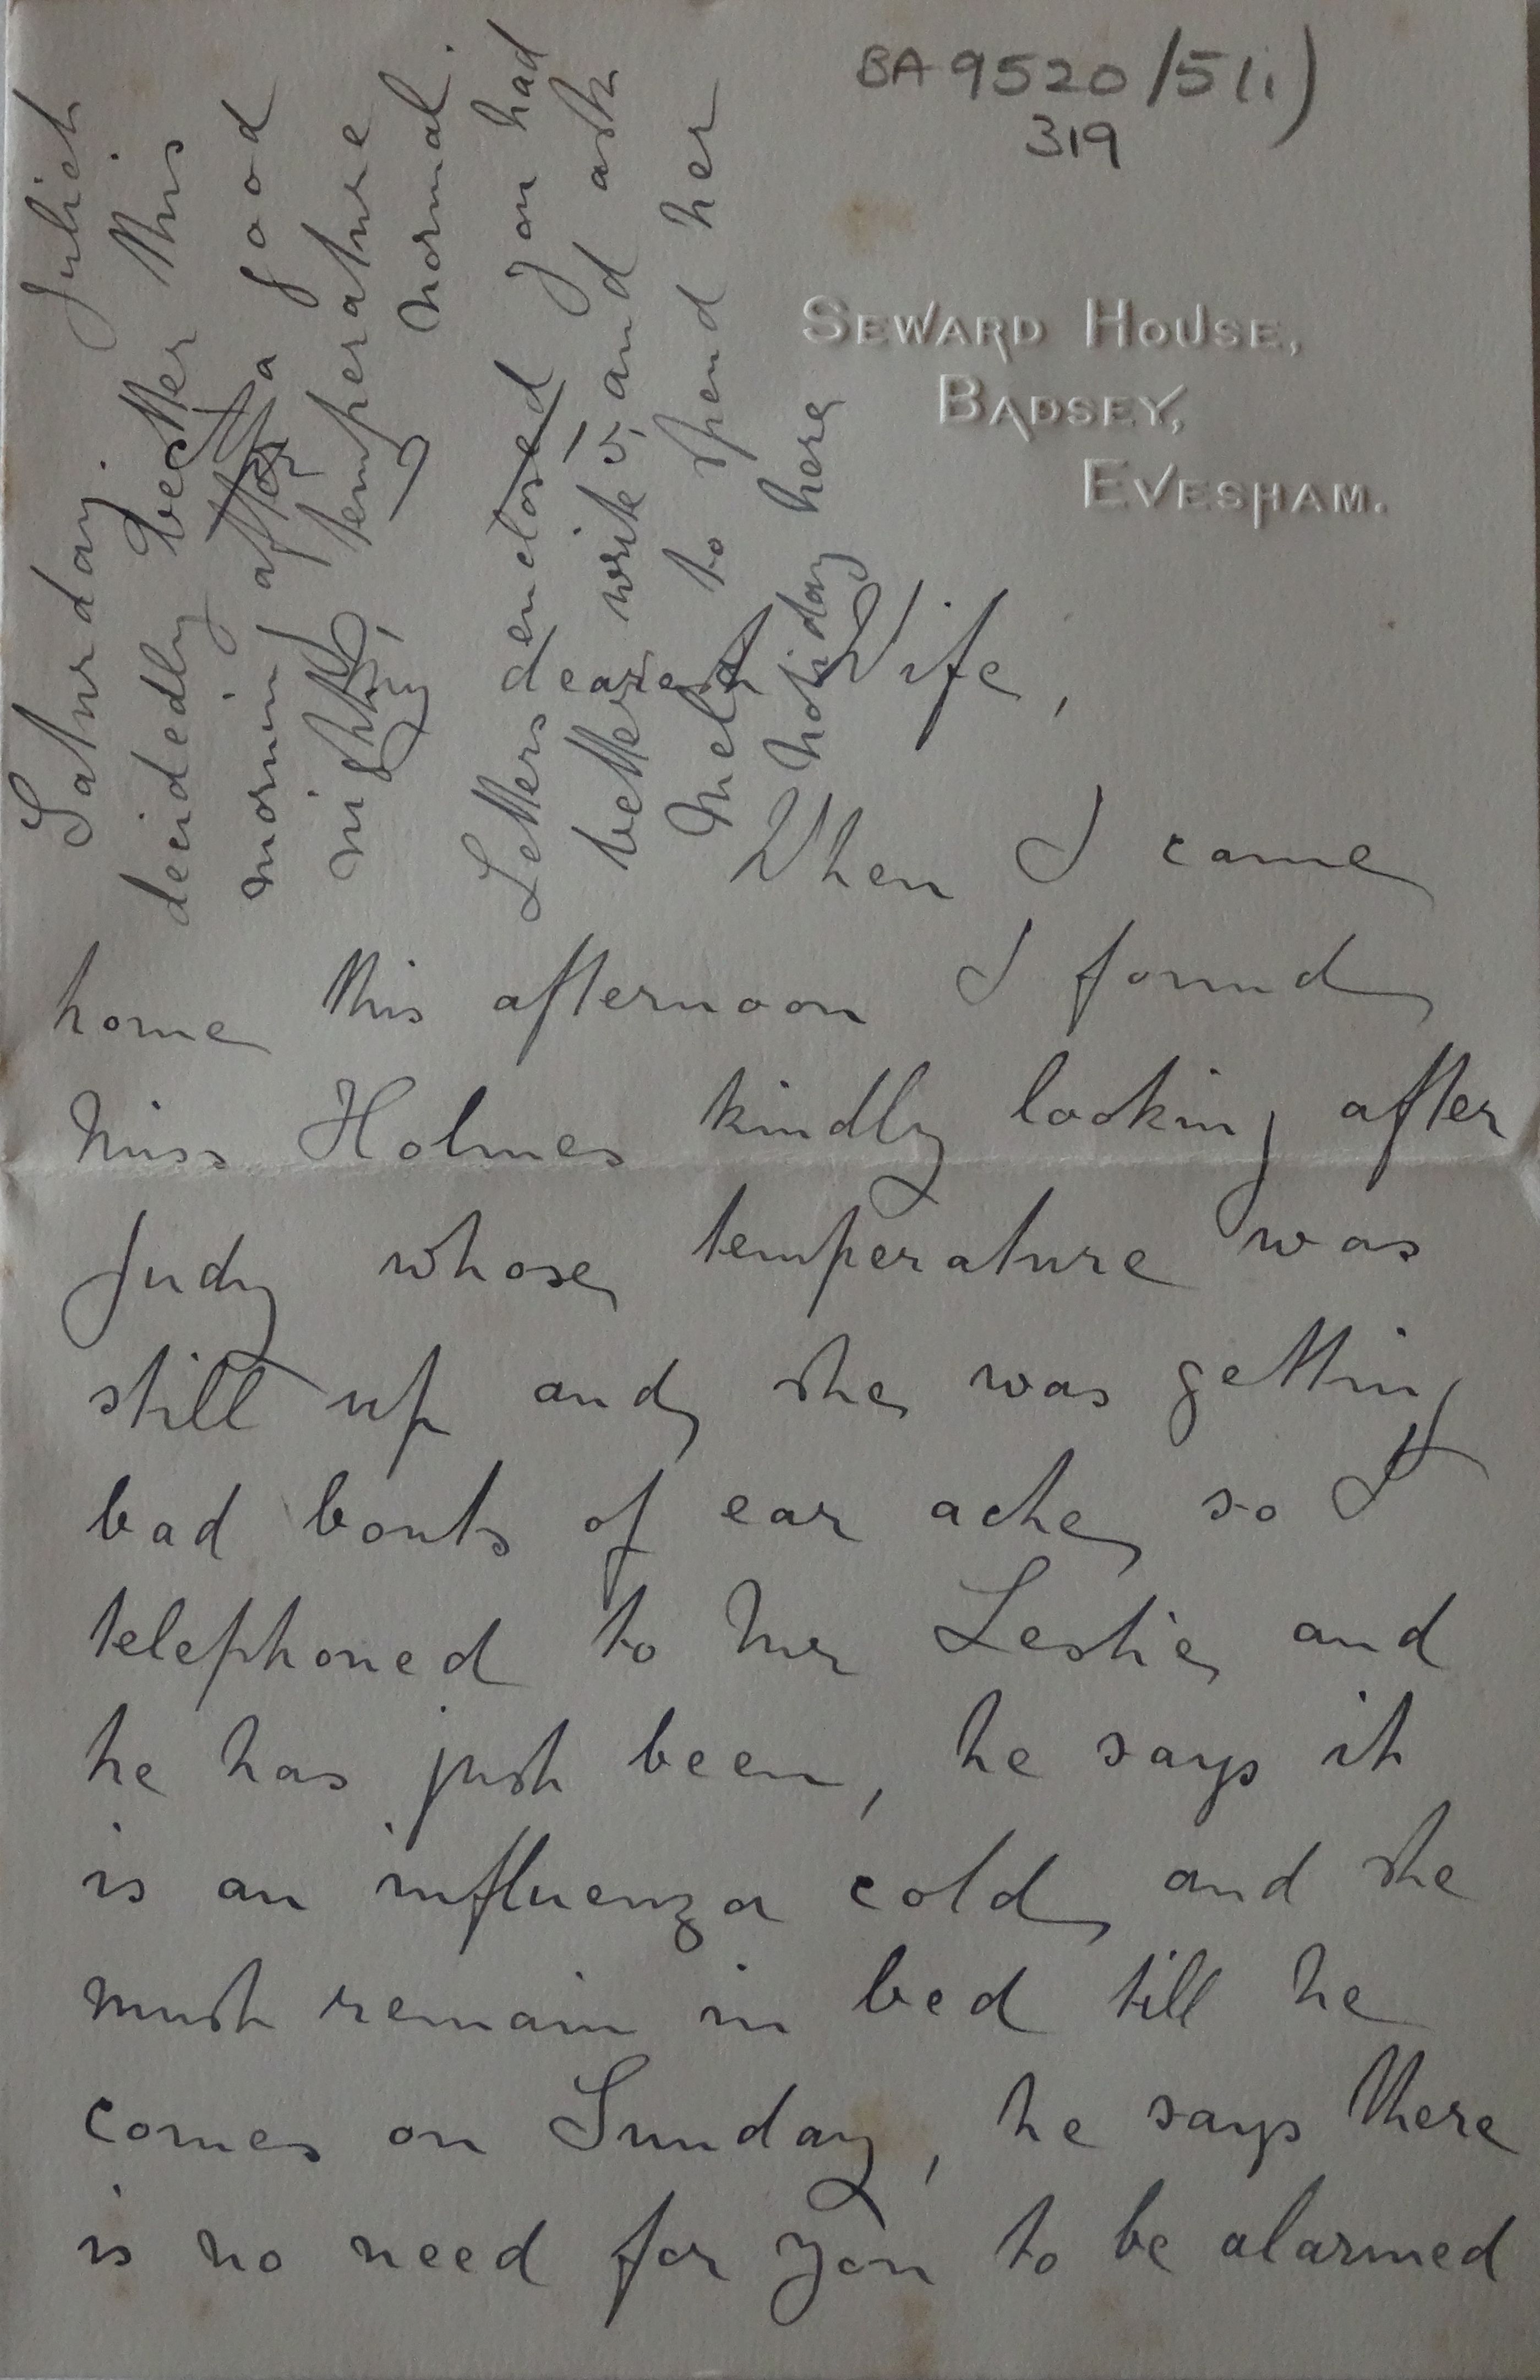 BA 9520/5(i)
319
SEWARD HOUSE,
BADSEY,
EVESHAM.
dearest Wife,
When I came
home this afternoon I found
Miss Holmes kindly looking after
Judy whose temperature was
still up and she was getting
bad bouts of ear ache so I
telephoned to Mr Leslie and
he has just been, he says it
is an influenza cold and she
must remain in bed till he
comes on Sunday, he says there
is no need for you to be alarmed
Saturday. Juliet
decidedly better this
morning after a good
night, temperature
normal.
Letters enclosed you had
better write & and ask
to spend her
holiday here